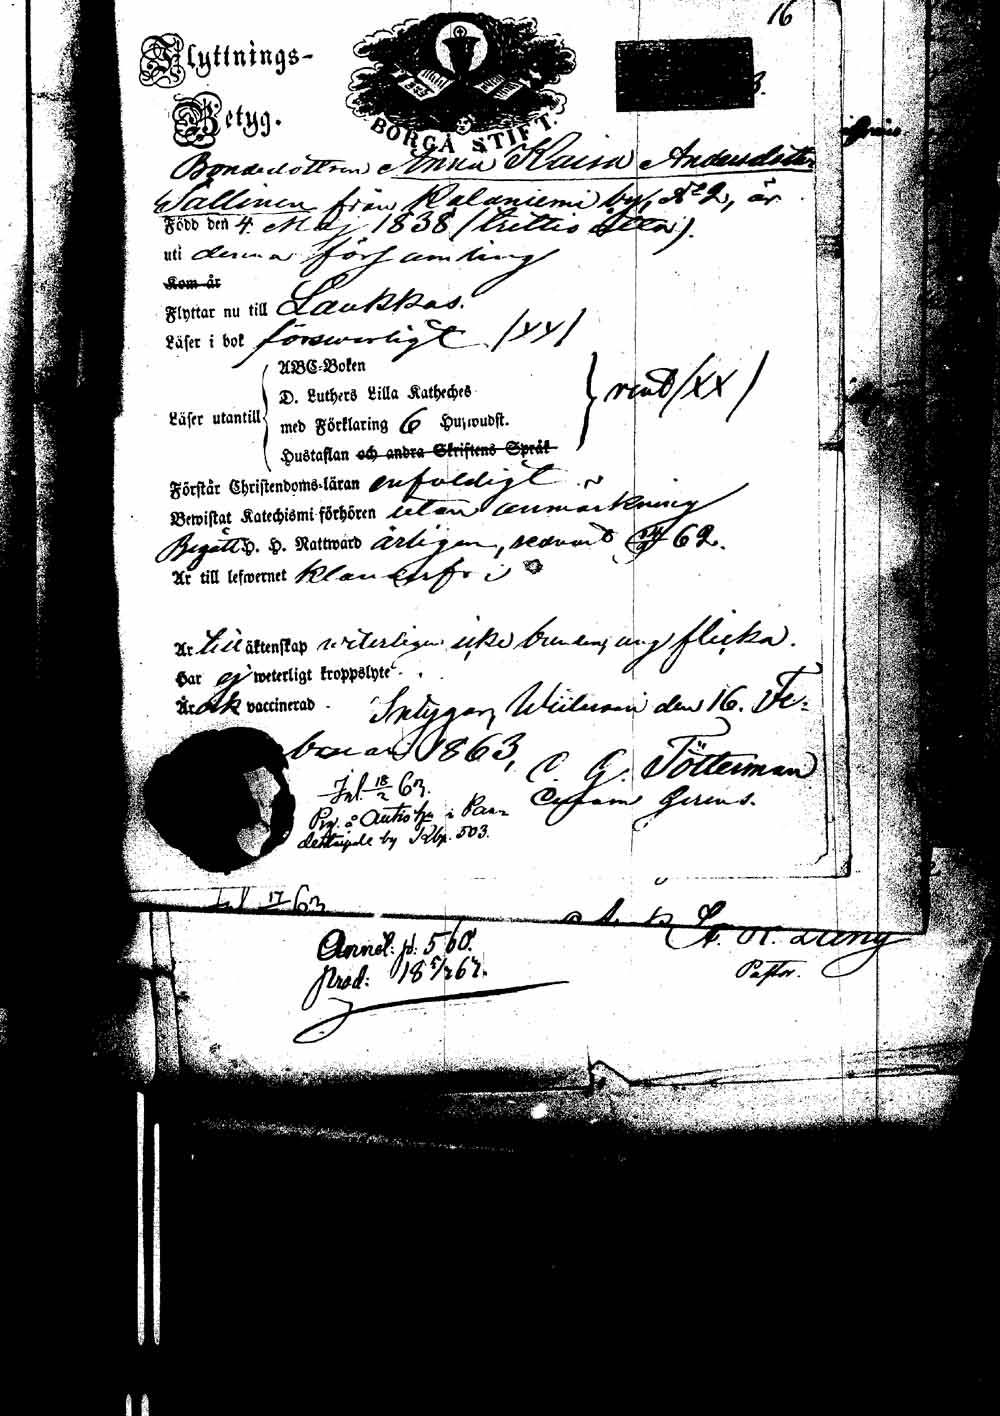 16
Flyttnings-
Betyg.
BORGÅ STIFT.
Bondedottren Anna Kaisa Andersdotter
Sallinen från Kalaniemi by, No 2, är
Född den 4. Maj 1838 (trettio åtta).
uti denna församling
Kom år
Flyttar nu till Laukkas.
Läser i bok försvarligt (XX)
ABC-Boken
D. Luthers Lilla Katheches
Läser utantill med Förklaring 6 Hufwudst. rent (XX)
Hustaflan och andra Skriftens Språk
Förstår Christendoms-läran enfaldigt
Bewistat Katechismi-förhören utan anmärkning
Begått H. H. Nattward årligen, senast 62.
Är till lefwernet klanderfri
Är till äktenskap veterligen icke bunden, ung flicka.
Har ej weterligt kroppslyte
Är ok vaccinerad. Intygar, Wiitasaari den 16. Fe-
bruari 1863,
C. G. Tötterman
Inl. 18/2 63.
Gerens.
by Kbp. 503.
Inl 17/ 63
Annot: p. 560.
Prod:
Pastor.